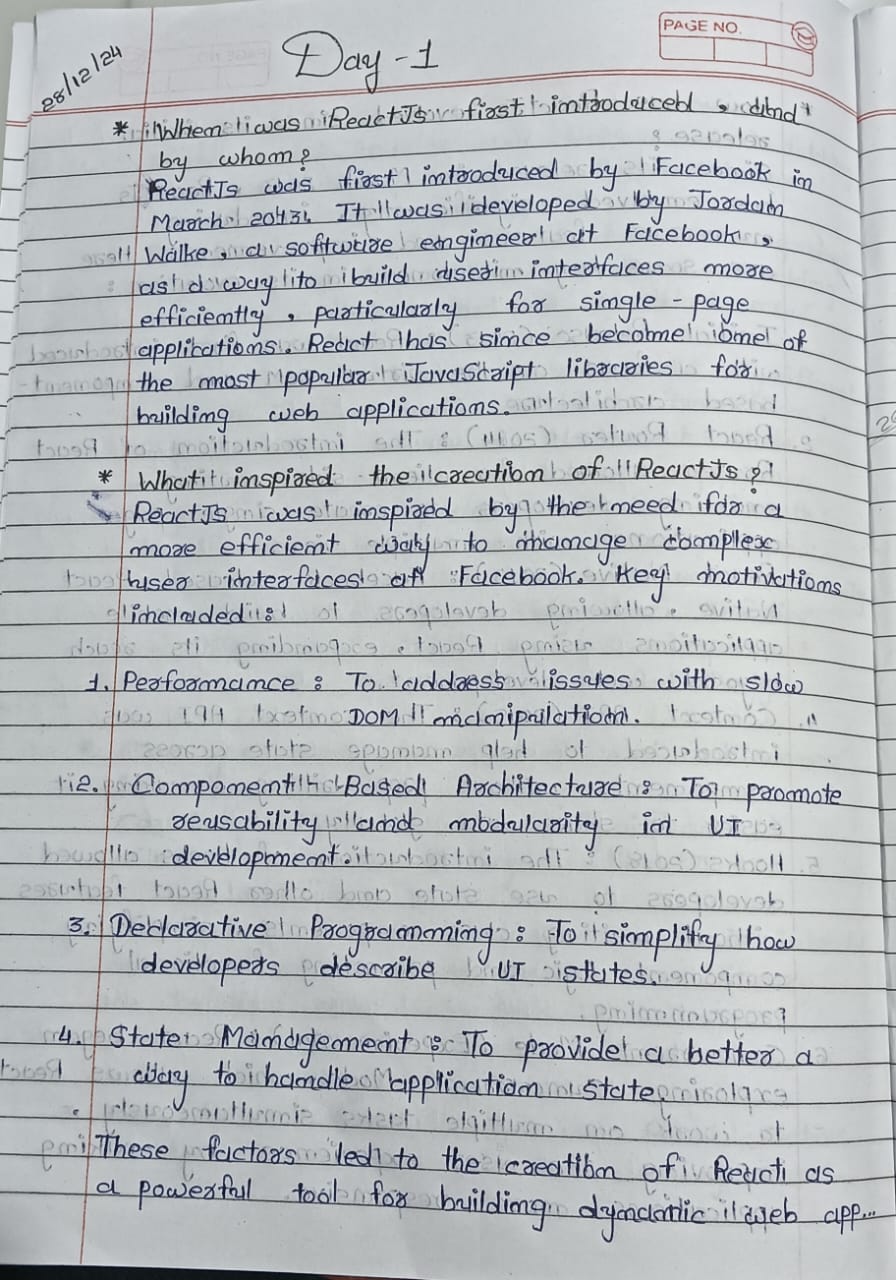 PAGE NO.
28/12/24
Day-1
* When was ReactJs first introduced, and
by whom?
ReactJs was first introduced by Facebook in
March 2013. It was developed by Jordan
Walke, a software engineer at Facebook,
as a way to build user interfaces more
efficiently, particularly for single-page
applications. React has since become one of
the most popular JavaScript libraries for
building web applications.
* What inspired the creation of ReactJs?
ReactJs was inspired by the need for a
more efficient way to manage complex
user interfaces at Facebook. Key motivations
included :
1. Performance : To address issues with slow
DOM manipulation.
2. Component Based Architecture : To promote
reusability and modularity in UI
development.
3. Declarative Programming : To simplify how
developers describe UI states.
4. State Management : To provide a better a
way to handle application state
These factors led to the creation of React as
a powerful tool for building dynamic web app...